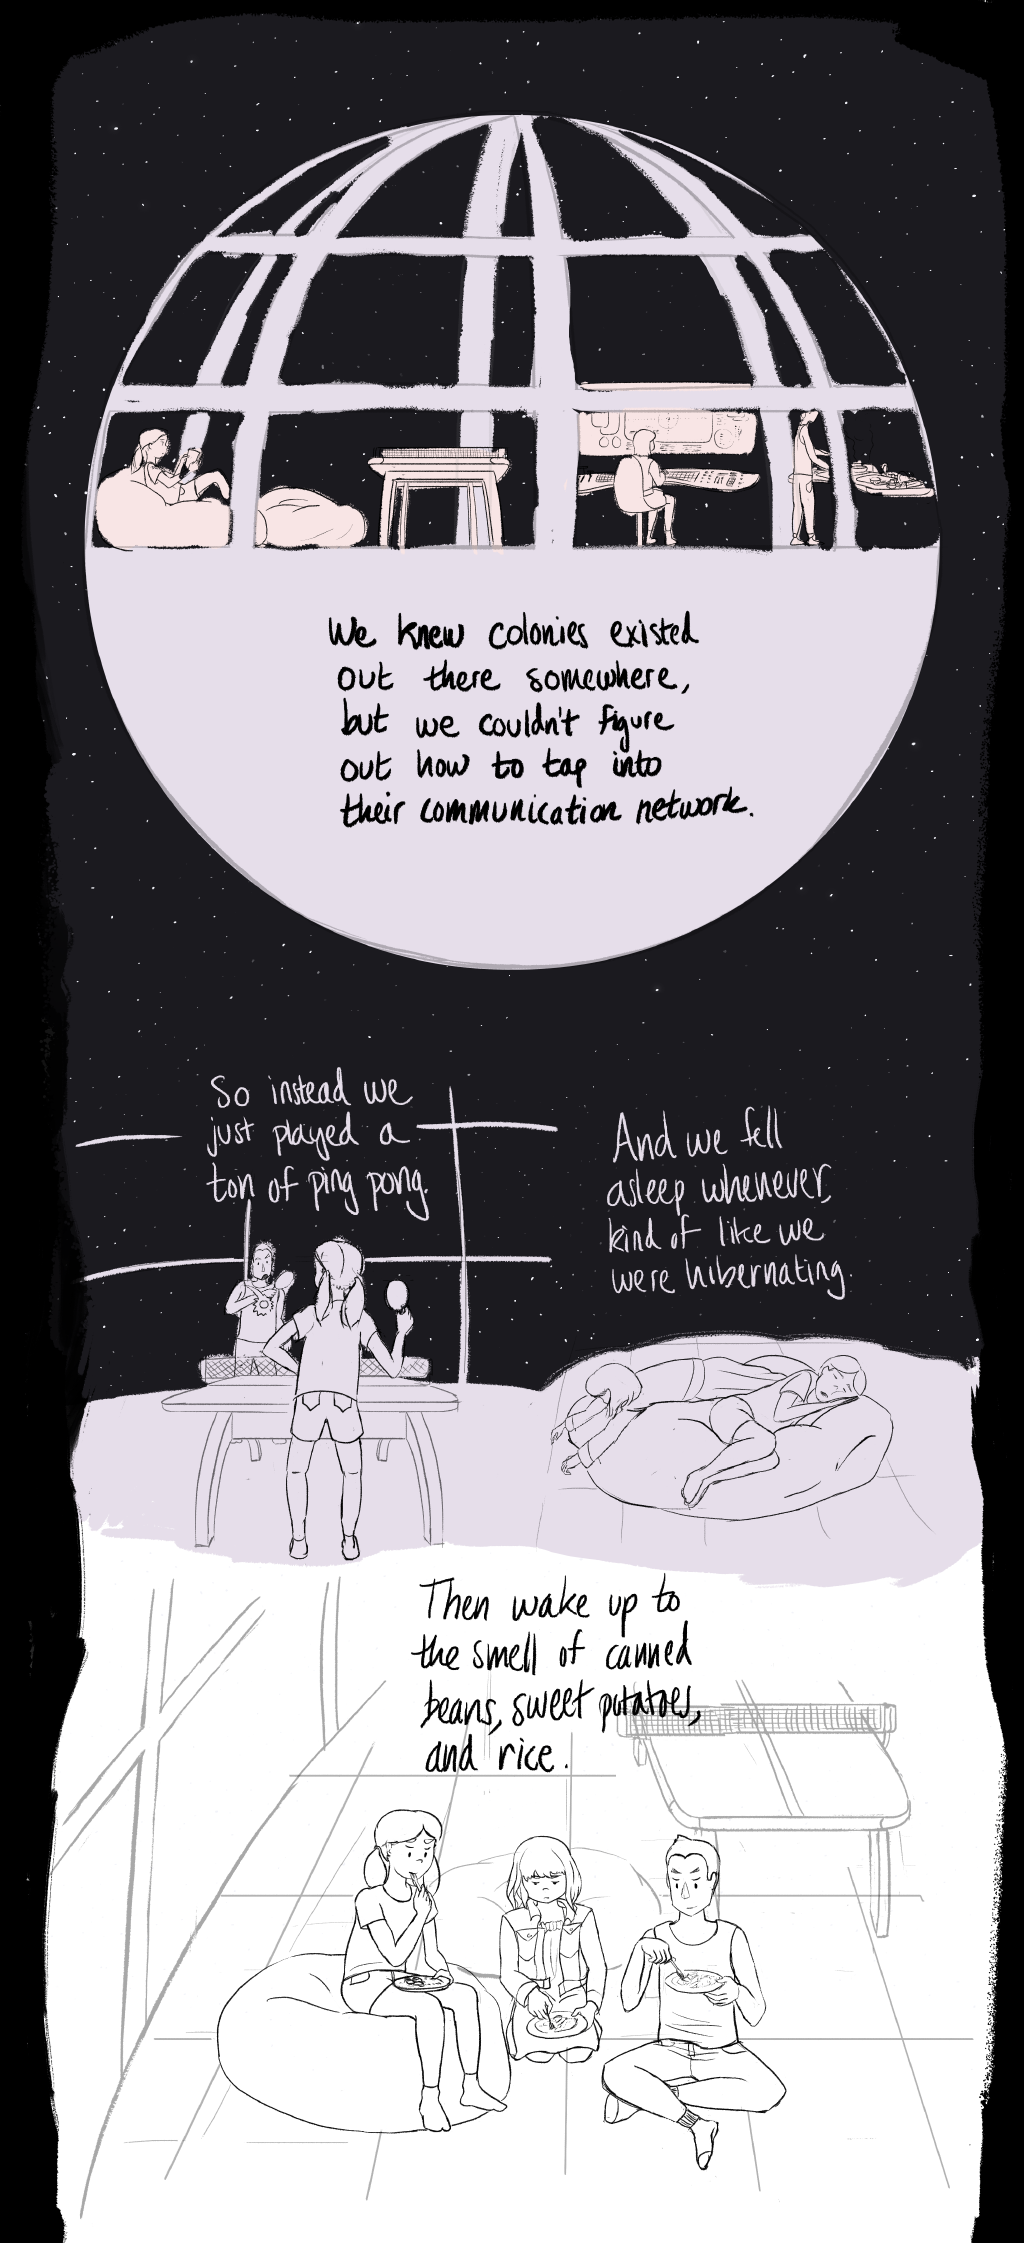 We knew colonies existed
out there somewhere,
but we couldn't figure
out how to tap into
their communication network.
So instead we
just played a
ton of ping pong.
And we fell
asleep whenever,
kind of like we
were hibernating.
Then wake up to
the smell of canned
beans, sweet potatoes,
and rice.